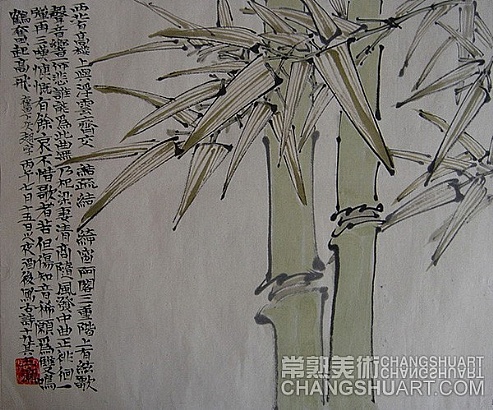 西北有高樓上與浮雲齊交疏結綺窗阿閣三重階上有弦歌
聲音響何悲誰能為此曲無乃杞梁妻清商隨風發中曲正徘徊一
彈再三嘆慷慨有餘哀不惜歌者苦但傷知音稀願為雙鳴
鶴奮起高飛 丙午七月十五日夜酒後寫古詩十九首
常熟美術 CHANGSHUART.COM
CHANGSHUART.COM